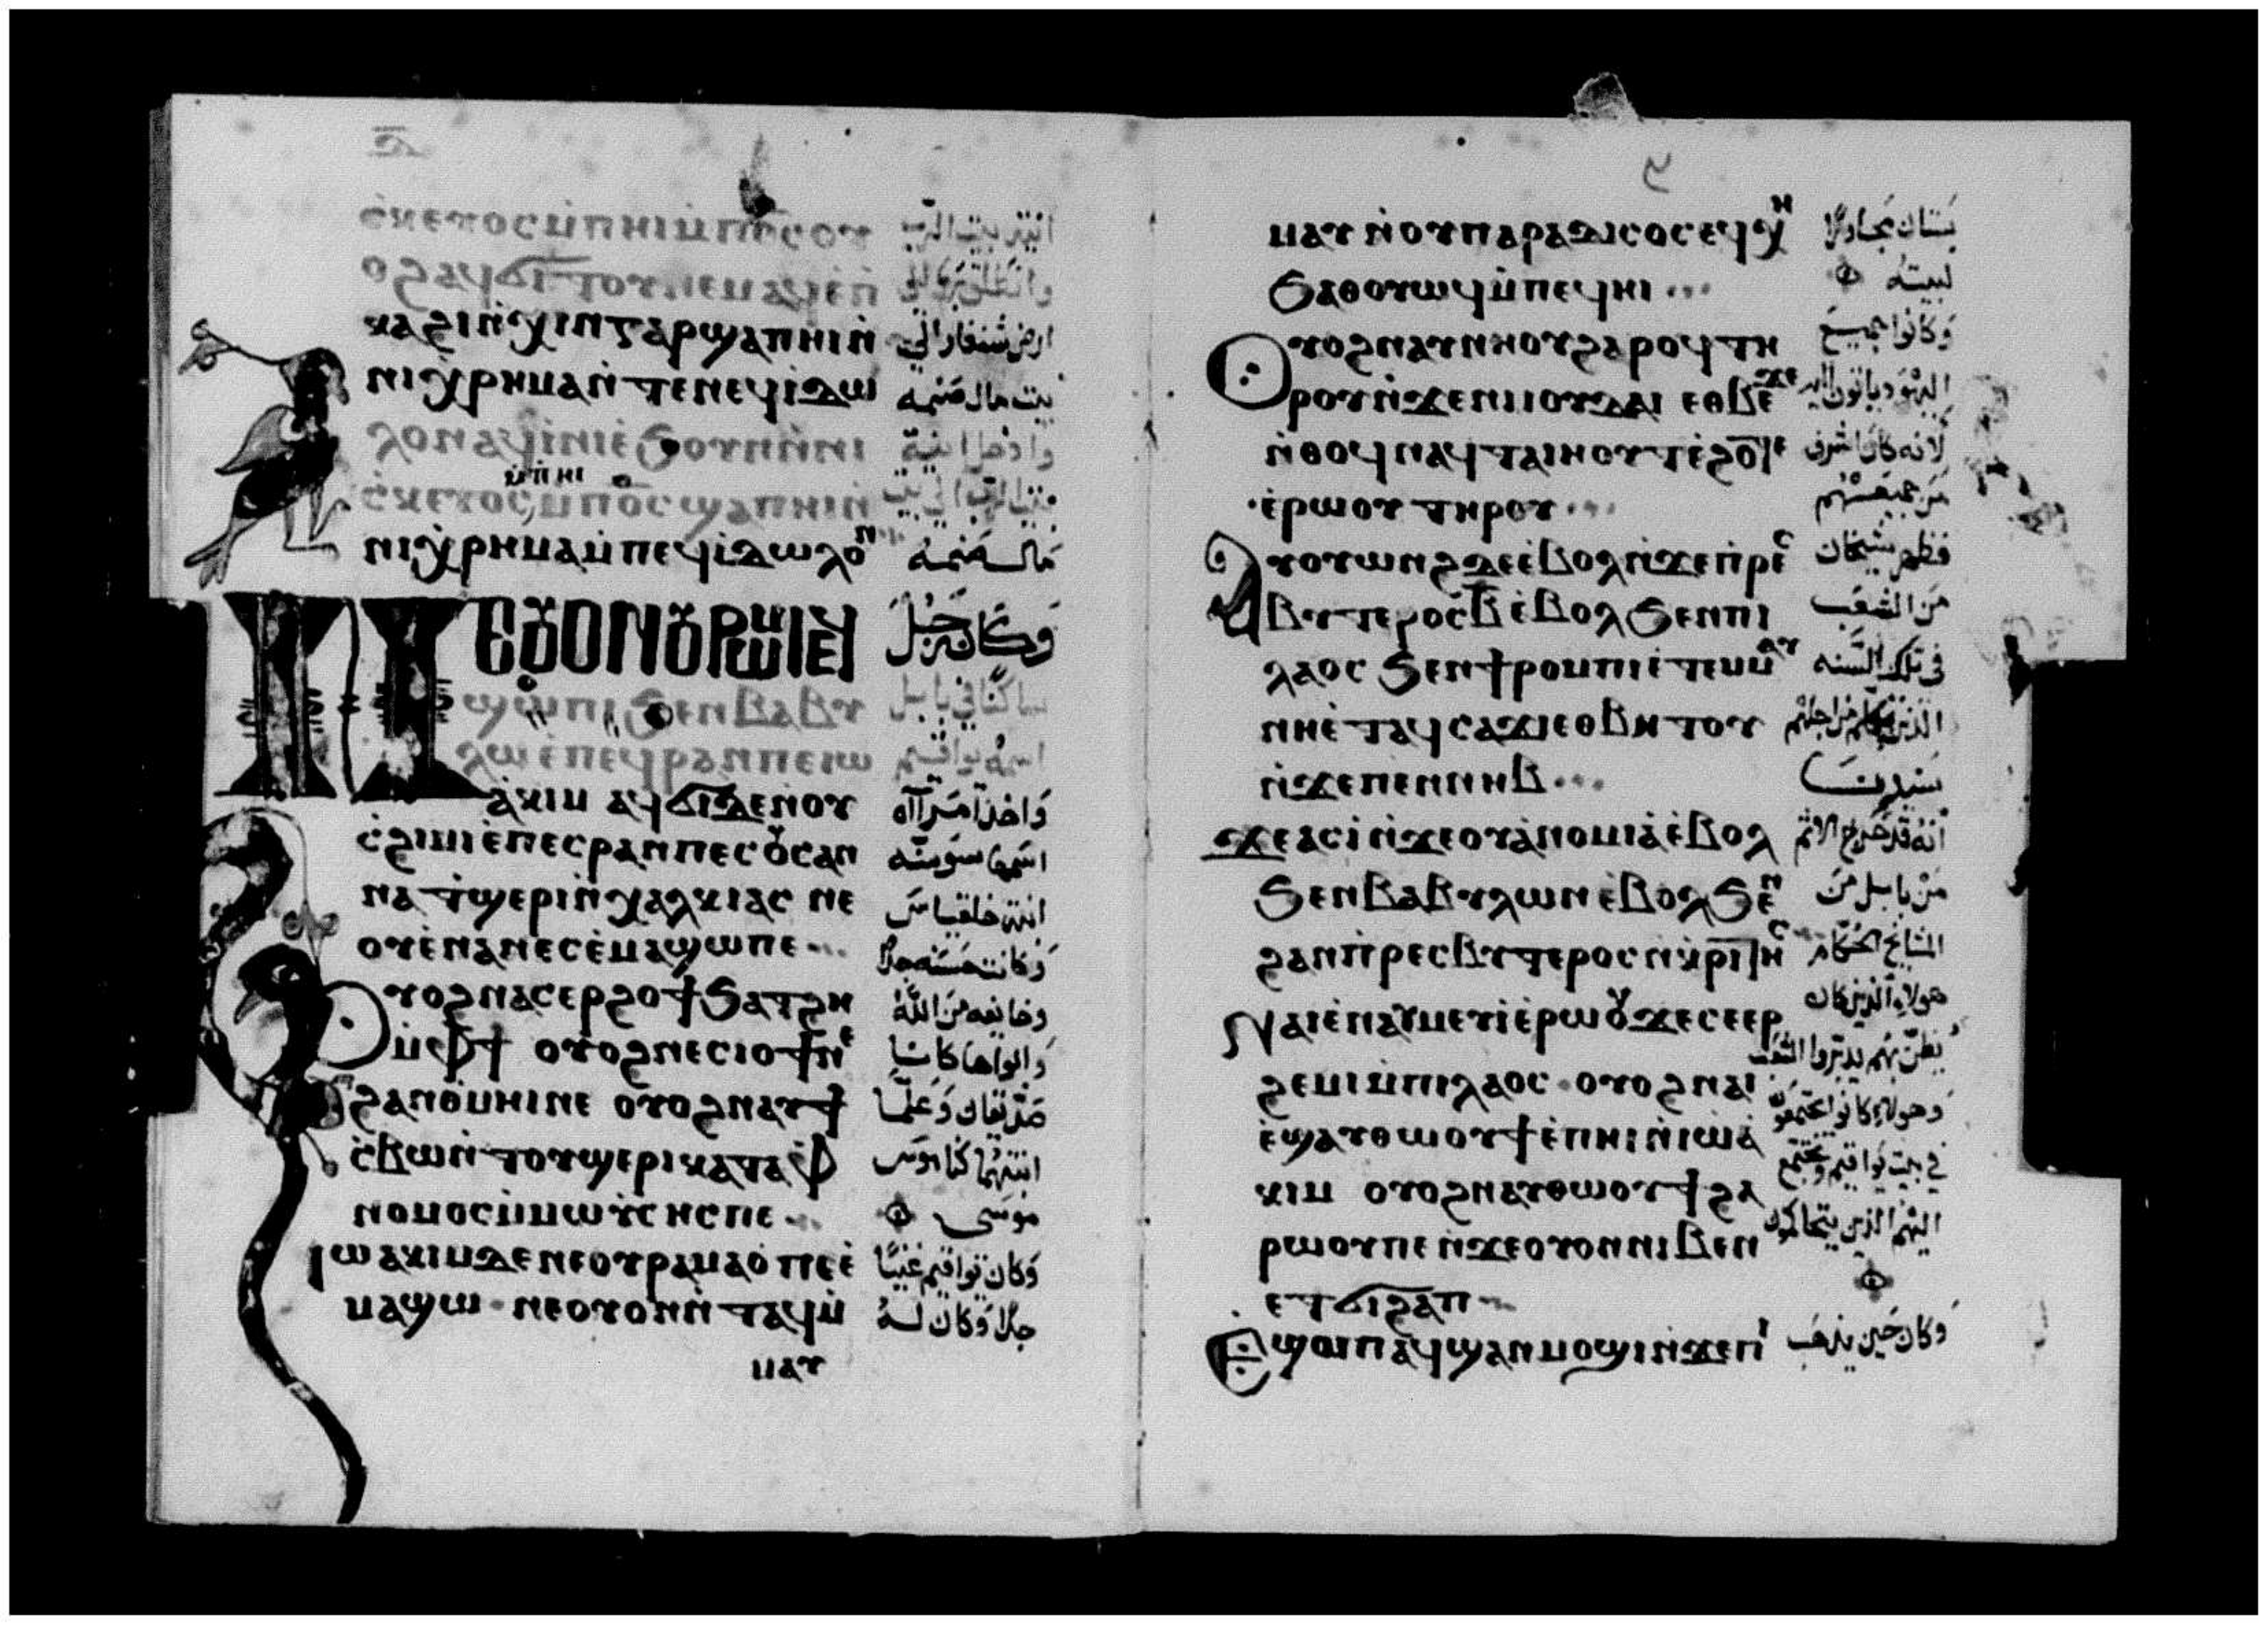 ⲥ̀ⲕⲉⲩⲟⲥ ⲙ̀ⲡⲏⲓ ⲙ̀ⲡϭⲥ ⲟⲩ انية بيت الرب
ⲟϩ ⲁϥϭⲓⲧⲟⲩ ⲛⲉⲙⲁϥ ⲉ̀ⲡ̀
ⲕⲁϩⲓ ⲛ̀ϫⲓⲛⲥⲁⲣ ϣⲁⲡⲏⲓ ⲛ̀ ارض شنغار الي
ⲛⲓⲭⲣⲏⲙⲁ ⲛ̀ⲧⲉ ⲛⲉϥⲓ̀ⲇⲱ بيت مال صنمه
ⲗⲟⲛ ⲁϥⲓⲛⲓ ⲉ̀ϧⲟⲩⲛ ⲛ̀ⲛⲓ وادخل انية
ⲙ̀ⲡⲏⲓ
ⲥ̀ⲕⲉⲩⲟⲥ ⲙ̀ⲡϭⲥ ϣⲁⲡⲏⲓ ⲛ̀ بيت الرب الي بيت
ⲛⲓⲭⲣⲏⲙⲁ ⲙ̀ⲡⲉϥⲓ̀ⲇⲱⲗⲟⲛ مال صنمه
ⲛⲉⲟⲩⲟⲛ ⲟⲩⲣⲱⲙⲓ ⲉϥ وكان رجل
ϣⲱⲡⲓ ϧⲉⲛ ⲃⲁⲃⲩ ساكنا في بابل
ⲗⲱ ⲉ̀ⲡⲉϥⲣⲁⲛ ⲡⲉ ⲓⲱ اسمه يواقيم
ⲁ̀ⲕⲓⲙ ⲁϥϭⲓ ⲇⲉ ⲛ̀ⲟⲩ واخذ امراه
ⲥ̀ϩⲓⲙⲓ ⲉ̀ⲡⲉⲥⲣⲁⲛ ⲡⲉ ⲥⲟⲩⲥⲁⲛ اسمها سوسنه
ⲛⲁ ⲧ̀ϣⲉⲣⲓ ⲛ̀ⲭⲁⲗⲕⲓⲁⲥ ⲛⲉ ابنة خلقياس
ⲟⲩⲉ̀ⲛⲁⲛⲉⲥ ⲉ̀ⲙⲁϣⲱ ⲡⲉ وكانت حسنه جدا
ⲟⲩⲟϩ ⲛⲁⲥⲉⲣϩⲟϯ ϧⲁⲧϩⲏ وخايفه من الله
ⲙ̀ⲫϯ ⲟⲩⲟϩ ⲛⲉⲥⲓⲟϯ ⲛⲉ وابواها كانا
ϩⲁⲛⲑ̀ⲙⲏⲓ ⲛⲉ ⲟⲩⲟϩ ⲛⲁⲩϯ صديقان وعلما
ⲥ̀ⲃⲱ ⲛ̀ⲧⲟⲩϣⲉⲣⲓ ⲕⲁⲧⲁ ⲫ ابنتهما كناموس
ⲛⲟⲙⲟⲥ ⲙ̀ⲙⲱⲩⲥⲏⲥ ⲡⲉ موسي
ⲓⲱⲁⲕⲓⲙ ⲇⲉ ⲛⲉ ⲟⲩⲣⲁⲙⲁⲟ̀ ⲡⲉ ⲉ̀ وكان يواقيم غنيا
ⲙⲁϣⲱ ⲛⲉ ⲟⲩⲟⲛ ⲛ̀ⲧⲁϥ ⲙ̀ جدا وكان له
ⲙⲁⲩ
ⲙⲁⲩ ⲛ̀ⲟⲩⲡⲁⲣⲁⲇⲓⲥⲟⲥ ⲉϥⲭⲏ بستان مجاورا
ϧⲁⲑⲟⲩⲱϥ ⲙ̀ⲡⲉϥⲏⲓ لبيته
ⲟⲩⲟϩ ⲛⲁⲩⲛⲏⲟⲩ ϩⲁⲣⲟϥ ⲧⲏ وكانوا جميع
ⲣⲟⲩ ⲛ̀ϫⲉ ⲛⲓⲓⲟⲩⲇⲁⲓ ⲉⲑⲃⲉϫⲉ اليهود ياتون اليه
ⲛ̀ⲑⲟϥ ⲛⲁϥⲧⲁⲓⲏⲟⲩⲧ ⲉ̀ϩⲟⲧⲉ لانه كان اشرف
ⲉ̀ⲣⲱⲟⲩ ⲧⲏⲣⲟⲩ من جميعهم
ⲁⲩⲟⲩⲱⲛϩ ⲇⲉ ⲉ̀ⲃⲟⲗ ⲛ̀ϫⲉ ⲡ̀ⲣⲉⲥ فظهر شيخان
ⲃⲩⲧⲉⲣⲟⲥ ⲃ̅ ⲉ̀ⲃⲟⲗ ϧⲉⲛ ⲡⲓ من الشعب
ⲗⲁⲟⲥ ϧⲉⲛ ϯⲣⲟⲙⲡⲓ ⲉ̀ⲧⲉⲙⲙⲁⲩ في تلك السنه
ⲛⲏ ⲉ̀ⲧⲁϥⲥⲁϫⲓ ⲉⲑⲃⲏⲧⲟⲩ الذين تكلم من اجلهم
ⲛ̀ϫⲉ ⲡⲉⲛⲛⲏⲃ سيدنا
ϫⲉ ⲁⲥⲓ̀ ⲛ̀ϫⲉ ⲟⲩⲁ̀ⲛⲟⲙⲓⲁ̀ ⲉ̀ⲃⲟⲗ انه قد خرج الاثم
ϧⲉⲛ ⲃⲁⲃⲩⲗⲱⲛ ⲉ̀ⲃⲟⲗ ϧⲉⲛ من بابل من
ϩⲁⲛⲡ̀ⲣⲉⲥⲃⲩⲧⲉⲣⲟⲥ ⲛ̀ⲕⲣⲓⲧⲏⲥ المشايخ الحكام
ⲛⲁⲓ ⲉ̀ⲛⲁⲩⲙⲉⲩⲓ̀ ⲉ̀ⲣⲱⲟⲩ ϫⲉ ⲥⲉⲉⲣ هولاء الذين كان
ϩⲉⲙⲓ ⲙ̀ⲡⲓⲗⲁⲟⲥ ⲟⲩⲟϩ ⲛⲁⲓ يظن بهم يدبروا الشعب
ⲉ̀ϣⲁⲩⲑⲱⲟⲩϯ ⲉ̀ⲡⲏⲓ ⲛ̀ⲓⲱⲁ̀ وهولاء كانوا يجتمعون
ⲕⲓⲙ ⲟⲩⲟϩ ⲛⲁⲩⲑⲱⲟⲩϯ ϩⲁ في بيت يواقيم ويجتمع
ⲣⲱⲟⲩ ⲡⲉ ⲛ̀ϫⲉ ⲟⲩⲟⲛ ⲛⲓⲃⲉⲛ اليهم الذين يتحاكمون
ⲉⲧϭⲓϩⲁⲡ
ⲉϣⲱⲡ ⲁϥϣⲁⲛⲙⲟϣⲓ ⲛ̀ϫⲉ ⲡⲓ وكان حين يذهب